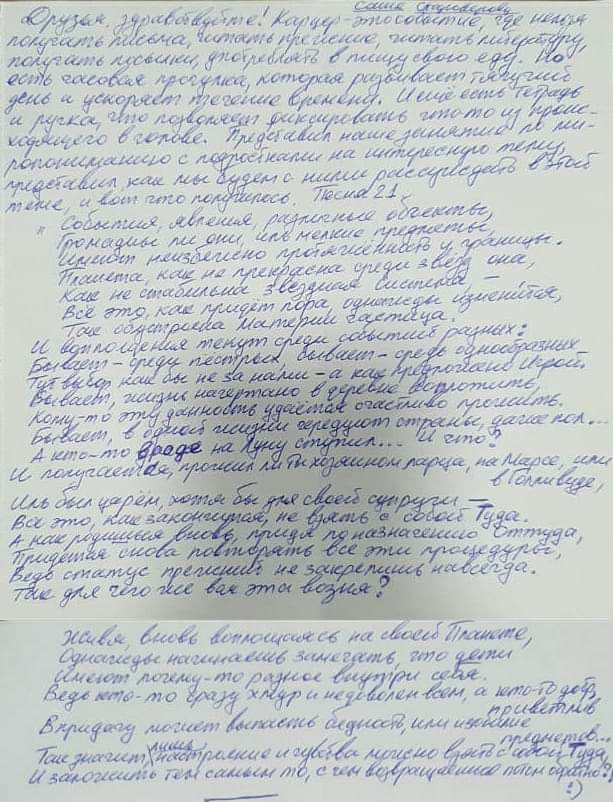 Саше Стундерову
Друзья, здравствуйте! Карцер - это событие, где нельзя
получать письма, читать прежние, читать литературу,
получать посылки, употреблять в пищу свою еду. Но
есть часовая прогулка, которая развивает тягучий
день и ускоряет течение времени. И ещё есть тетрадь
и ручка, что позволяет фиксировать что-то из проис-
ходящего в голове. Представил наше занятие по ми-
ропониманию с подростками на интересную тему,
представил, как мы будем с ними рассуждать в этой
теме, и вот что получилось. Песня 21.
" События, явления, различные объекты,
Громадны ли они, иль мелкие предметы,
Имеют неизбежно протяжённость и границы.
Планета, как не прекрасна среди звёзд она,
Как не стабильна звёздная система, —
Всё это, как придёт пора, однажды изменится,
Так обустроена материи частица.
И воплощения текут среди событий разных:
Бывает - среди пёстрых, бывает - средь однообразных
Тут выбор как бы не за нами - а как предложено Игрой.
Бывает, жизнь начертано в деревне воплотить,
Кому-то эту данность удаётся счастливо прожить.
Бывает, в одной жизни чередуют страны, даже пол...
А кто-то вроде на Луну ступил... И что?
И получается, прожил ли ты хозяином ларца, на Марсе, или
в Голливуде,
Иль был царём, хотя бы для своей супруги —
Всё это, как закончится, не взять с собой Туда.
А как родишься вновь, придя по назначению Оттуда,
Придётся снова повторять все эти процедуры,
Ведь статус прежний не закрепишь навсегда.
Так для чего же вся эта возня?
Живя, вновь воплощаясь на своей Планете,
Однажды начинаешь замечать, что дети
Имеют почему-то разное внутри себя.
Ведь кто-то сразу хмур и недоволен всем, а кто-то добр,
приветлив
В придачу может выпасть бедность, или изобилие
предметов...
Так значит, лишь настроение и чувства можно взять с собой Туда,
И заложить тем самым то, с чем возвращение потом обратно?
:)